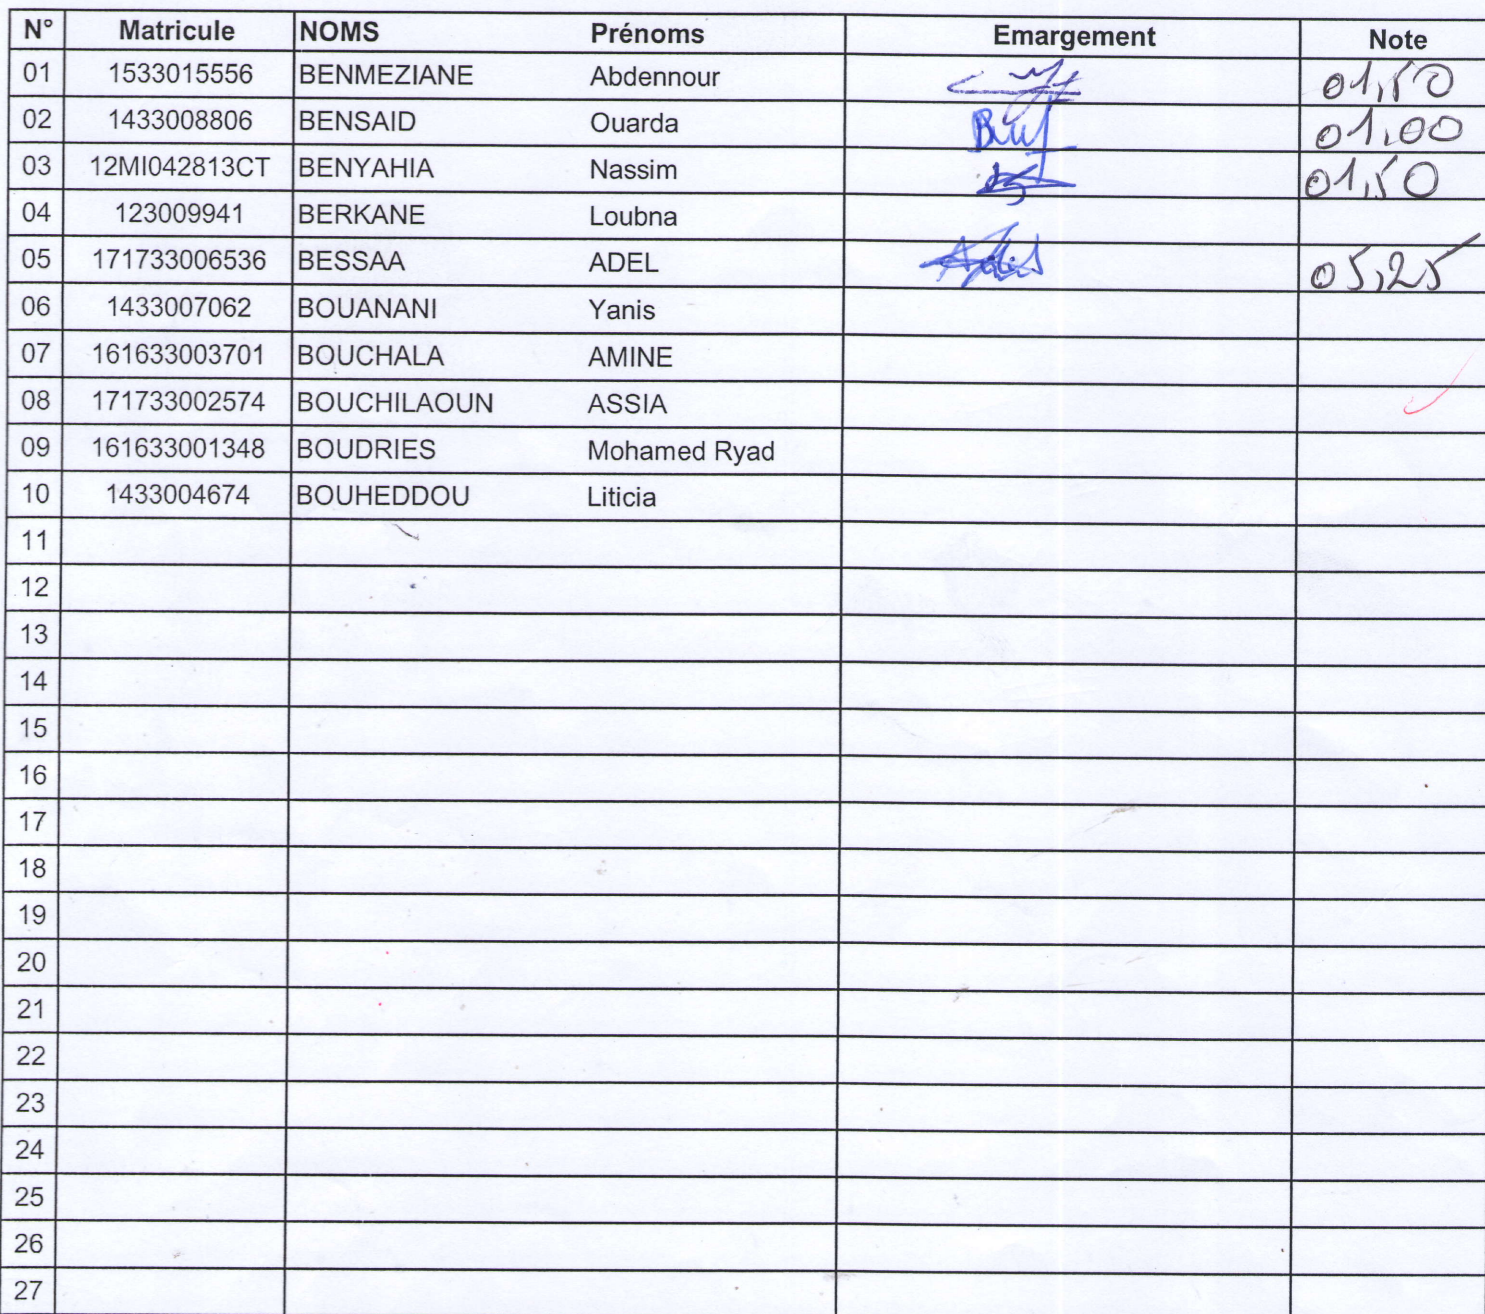 N° Matricule NOMS Prénoms Emargement Note
01 1533015556 BENMEZIANE Abdennour 01,50
02 1433008806 BENSAID Ouarda 01,00
03 12MI042813CT BENYAHIA Nassim 01,50
04 123009941 BERKANE Loubna
05 171733006536 BESSAA ADEL 05,25
06 1433007062 BOUANANI Yanis
07 161633003701 BOUCHALA AMINE
08 171733002574 BOUCHILAOUN ASSIA
09 161633001348 BOUDRIES Mohamed Ryad
10 1433004674 BOUHEDDOU Liticia
11
12
13
14
15
16
17
18
19
20
21
22
23
24
25
26
27